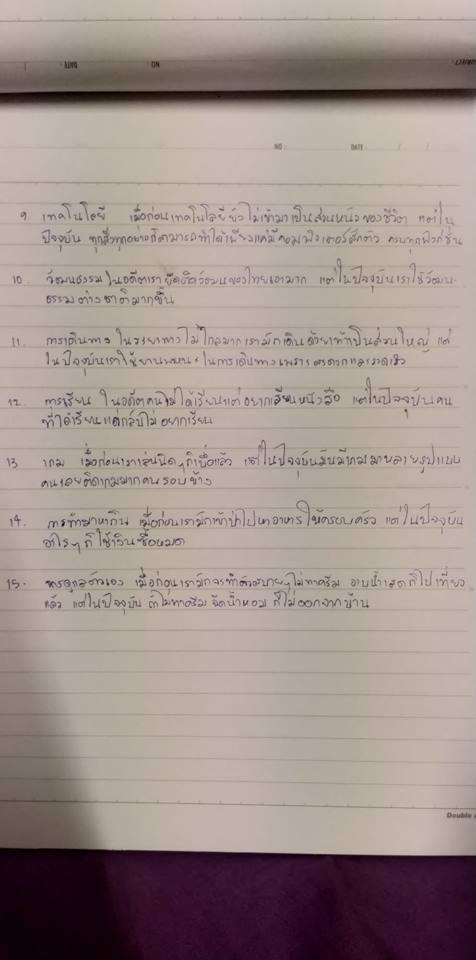 NO
DATE
NO
DATE / /
9. เทคโนโลยี เมื่อก่อนเทคโนโลยียังไม่เข้ามาเป็นส่วนหนึ่งของชีวิต แต่ใน
ปัจจุบัน ทุกสิ่งทุกอย่างก็สามารถทำได้เพียงแค่มีคอมพิวเตอร์สักตัว ครบทุกฟังก์ชั่น
10. วัฒนธรรม ในอดีตเรายึดถือวัฒนของไทยเอามาก แต่ในปัจจุบันเราใช้วัฒน-
ธรรมต่างชาติมากขึ้น
11. การเดินทาง ในระยะทางไม่ไกลมากเรามักเดินด้วยเท้าเป็นส่วนใหญ่ แต่
ในปัจจุบันเราใช้ยานพหนะในการเดินทางเพราะสะดวกและรวดเร็ว
12. การเรียน ในอดีตคนไม่ได้เรียนแต่อยากเรียนหนังสือ แต่ในปัจจุบันคน
ที่ได้เรียนแต่กลับไม่อยากเรียน
13. เกม เมื่อก่อนเราเล่นนิดๆก็เบื่อแล้ว แต่ในปัจจุบันมันมีเกมมาหลายรูปแบบ
คนเลยติดเกมมากคนรอบข้าง
14. การทำมาหากิน เมื่อก่อนเรามักเข้าป่าไปหาอาหารให้ครอบครัว แต่ในปัจจุบัน
อะไรๆก็ใช้เงินซื้อหมด
15. การดูแลตัวเอง เมื่อก่อนเรามักจะทำตัวสบายๆไม่ทาครีม อาบน้ำเสร็จก็ไปเที่ยว
แล้ว แต่ในปัจจุบัน ถ้าไม่ทาครีม ฉีดน้ำหอม ก็ไม่ออกจากบ้าน
Double A